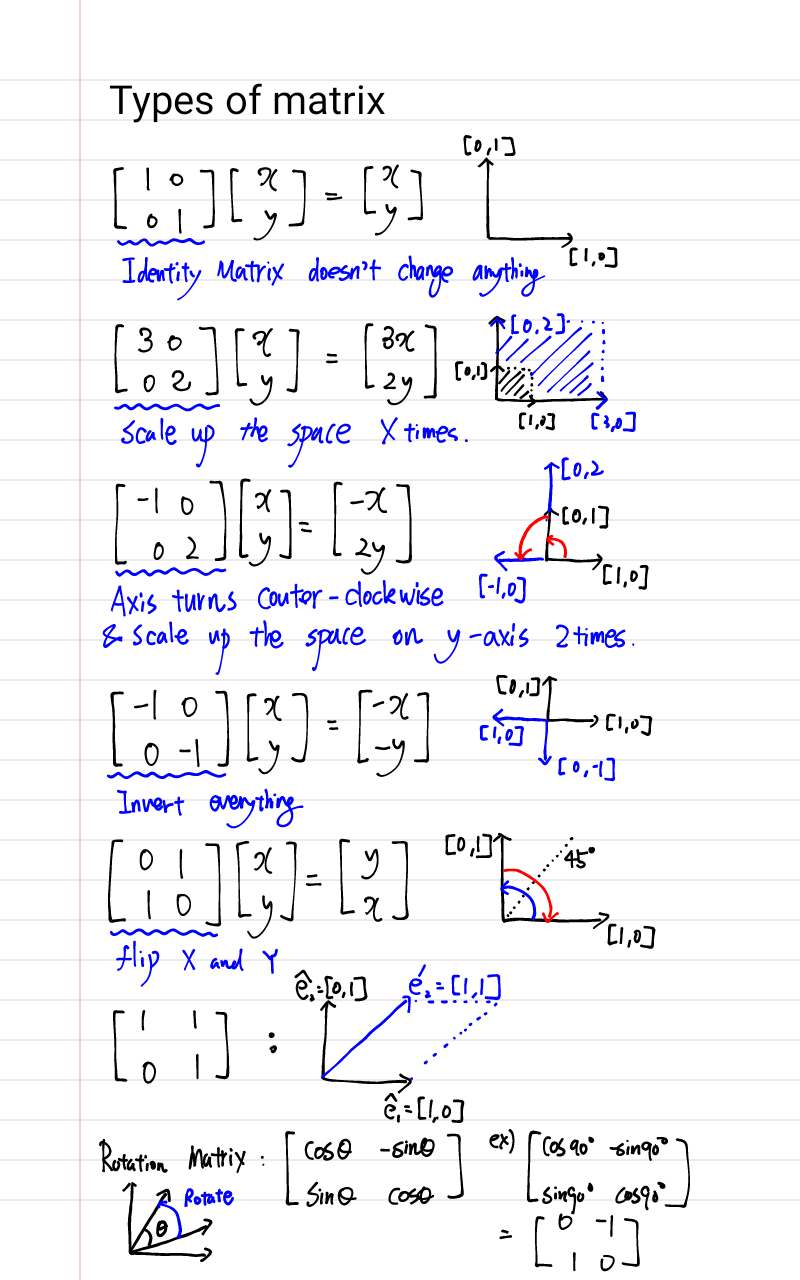 Types of matrix
[0,1]
[1 0
0 1] [x
y] = [x
y]
[1,0]
Identity Matrix doesn't change anything
[3 0
0 2] [x
y] = [3x
2y]
[0,2]
[0,1]
[1,0] [3,0]
Scale up the space X times.
[0,2
[-1 0
0 2] [x
y] = [-x
2y]
[0,1]
[-1,0] [1,0]
Axis turns Coutor-clockwise
& scale up the space on y-axis 2times.
[0,1]
[-1 0
0 -1] [x
y] = [-x
-y]
[1,0] [1,0]
[0,-1]
Invert everything
[0,1]
45°
[0 1
1 0] [x
y] = [y
x]
[1,0]
flip X and Y
ê₂=[0,1] é₂=[1,1]
[1 1
0 1] :
ê₁=[1,0]
Rotation Matrix : [cosθ -sinθ
sinθ cosθ]
ex) [cos90° -sin90°
sin90° cos90°]
Rotate
θ
= [0 -1
1 0]